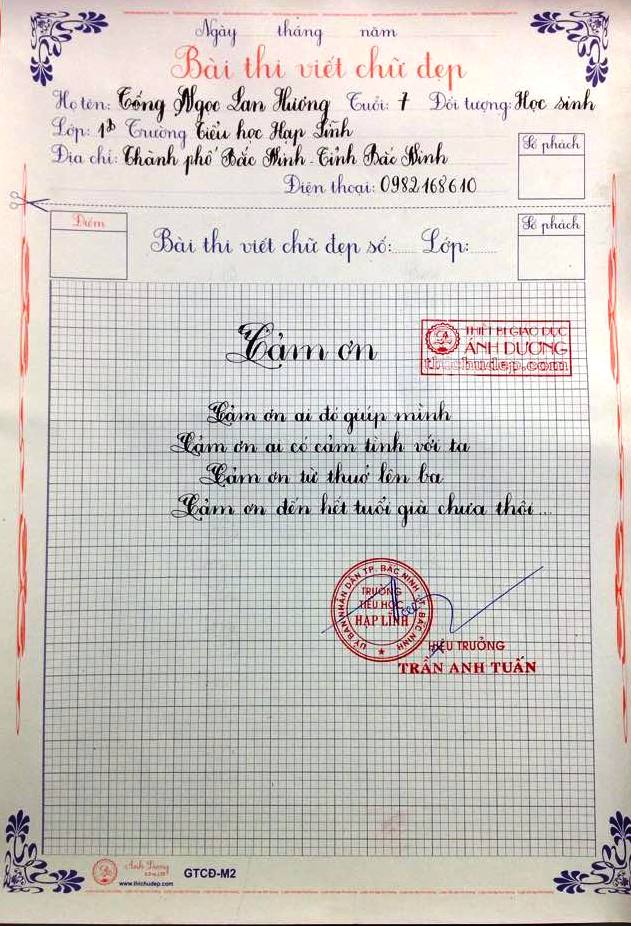 Ngày tháng năm
Bài thi viết chữ đẹp
Họ tên: Tống Ngọc Lan Hương Tuổi: 7 Đối tượng: Học sinh
Lớp: 1b Trường Tiểu học Hạp Lĩnh
Địa chỉ: Thành phố Bắc Ninh - Tỉnh Bắc Ninh
Điện thoại: 0982168610
Số phách
Điểm
Bài thi viết chữ đẹp số:...... Lớp:......
Số phách
Cảm ơn
THIẾT BỊ GIÁO DỤC
ÁNH DƯƠNG
thichudep.com
Cảm ơn ai đó giúp mình
Cảm ơn ai có cảm tình với ta
Cảm ơn từ thuở lên ba
Cảm ơn đến hết tuổi già chưa thôi...
ỦY BAN NHÂN DÂN TP. BẮC NINH T. BẮC NINH
TRƯỜNG
TIỂU HỌC
HẠP LĨNH
HIỆU TRƯỞNG
TRẦN ANH TUẤN
Ánh Dương
www.thichudep.com
GTCĐ-M2